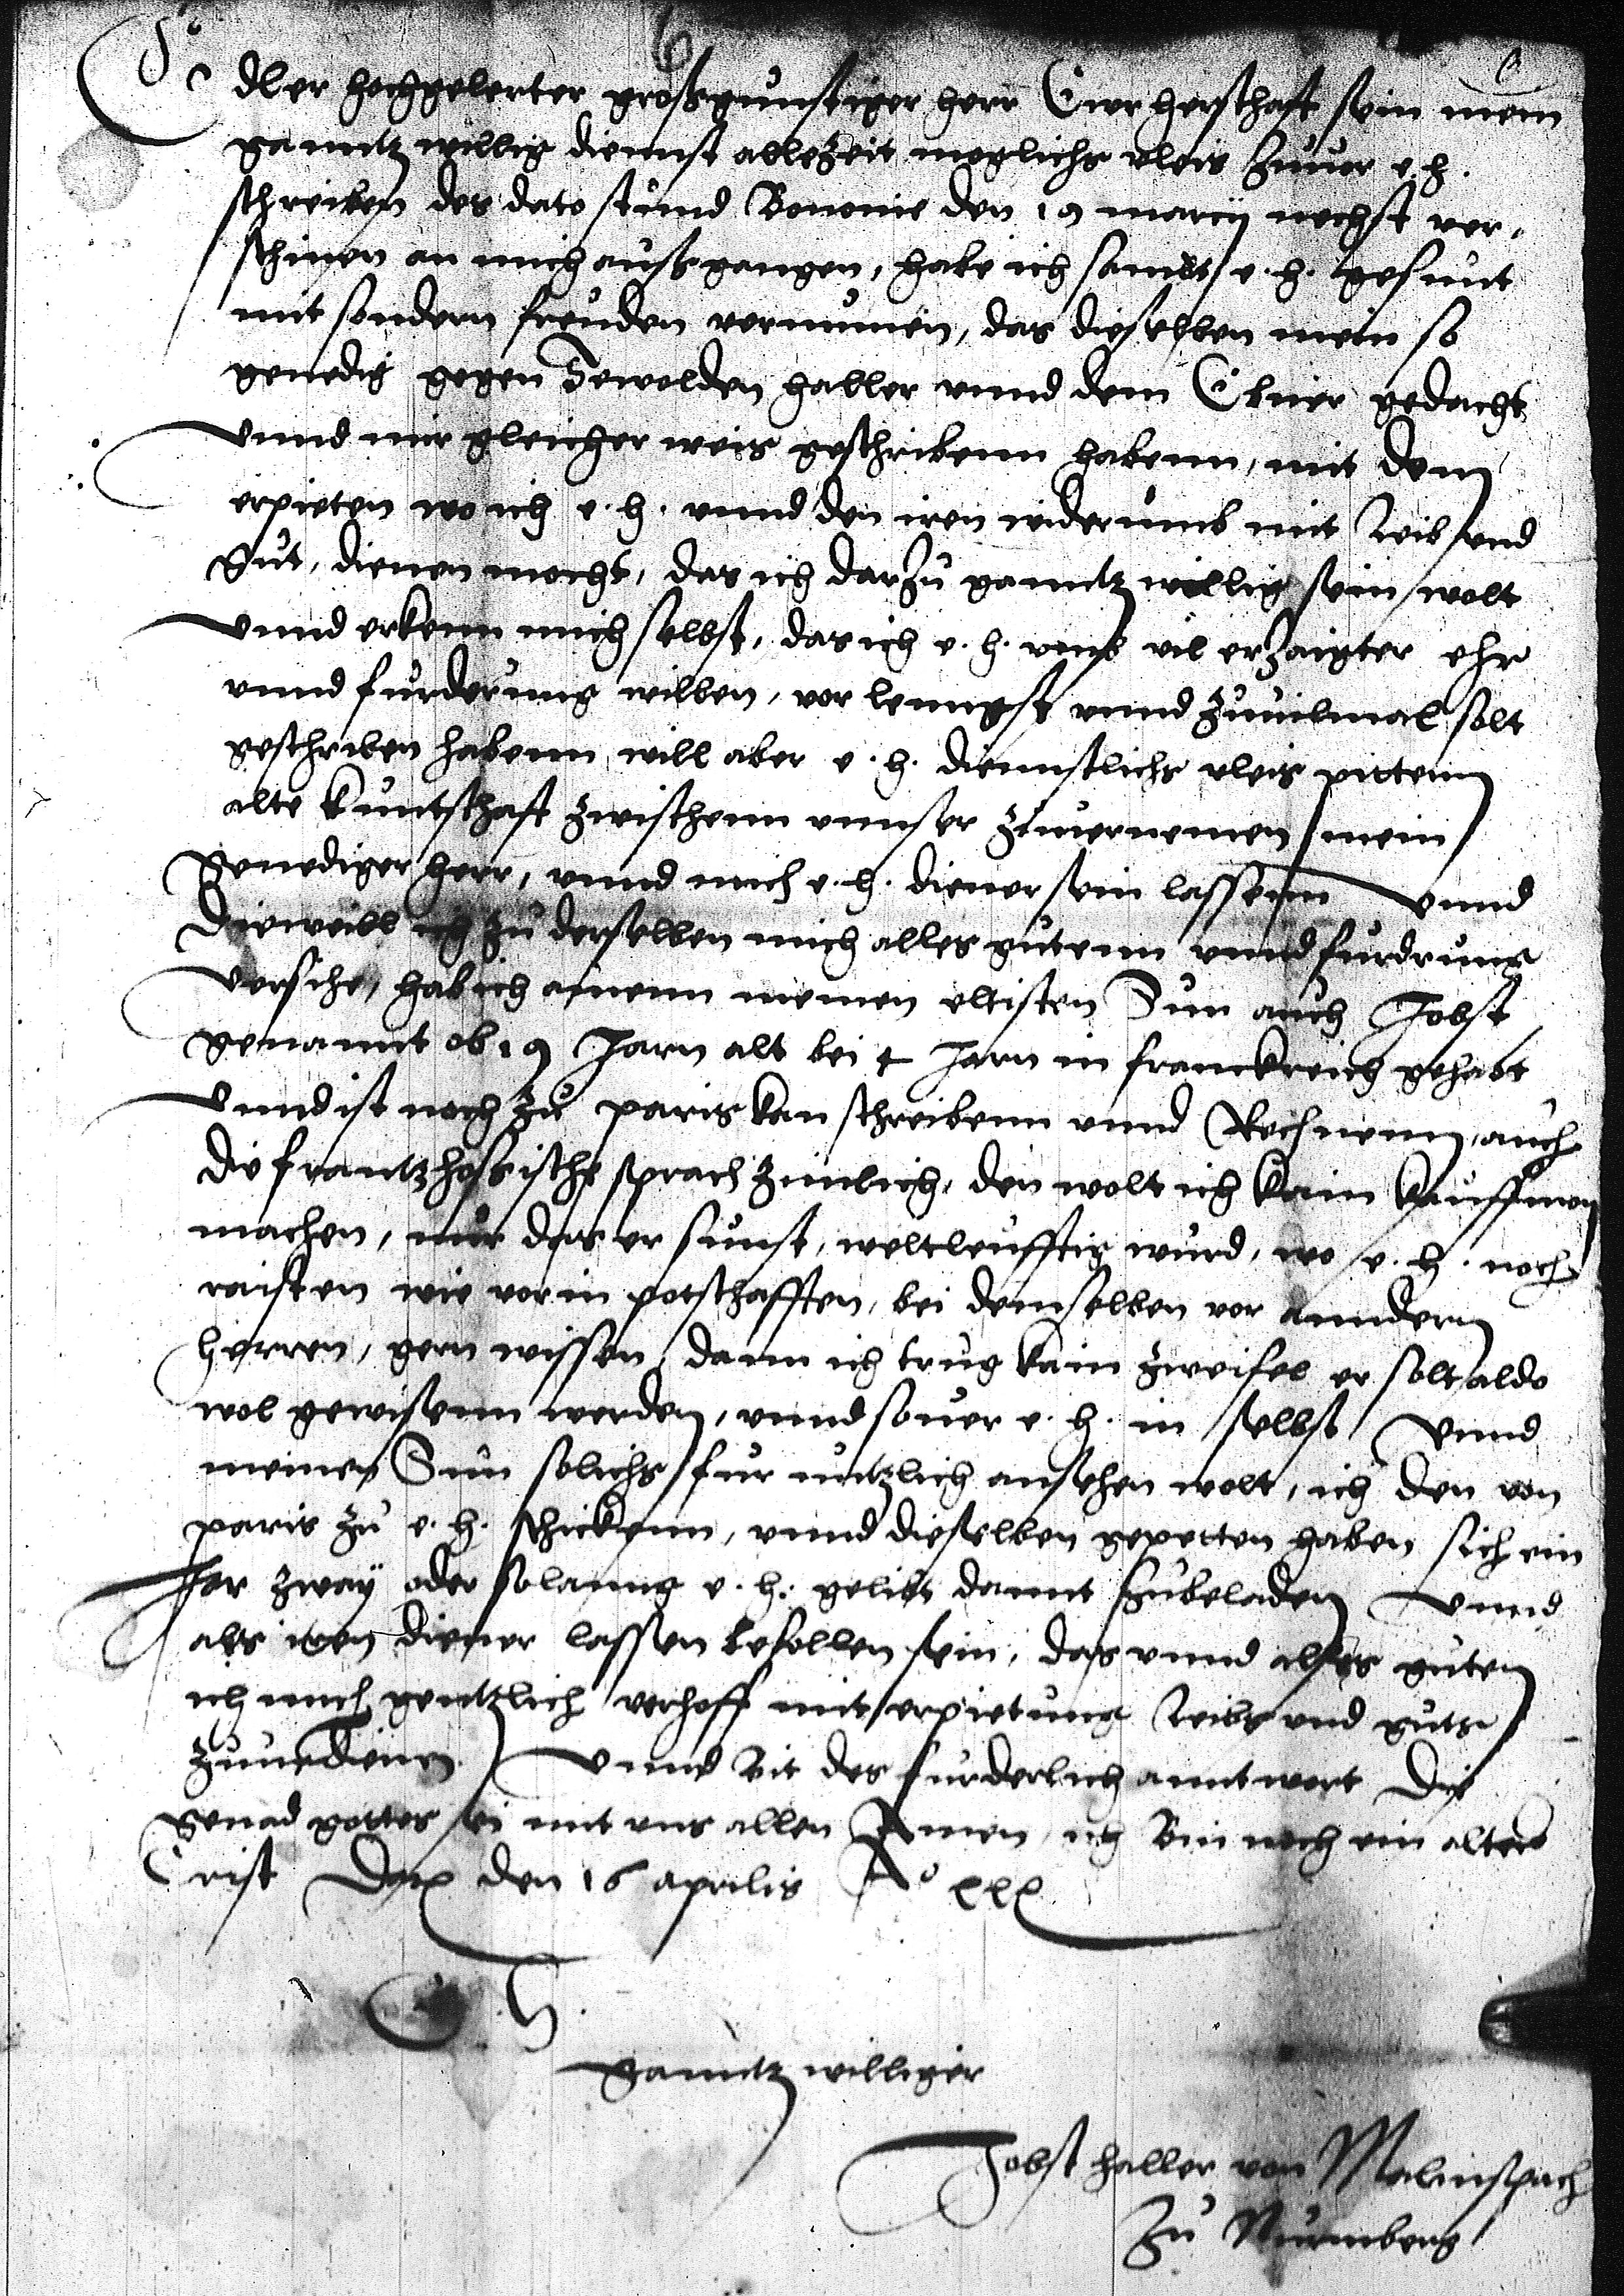 6
Edler hochgelerter großgunstiger herr Ewr herschafft sein mein
ganntz willig diennst allezeit moglichs vleis zuuor e. h.
schreiben des dato stund Bononie den 19 marcij nechst ver,
schinen an mich aufsgangen, habe ich sambt e. h. gesunt
mit sondern freuden vernumen, das dieselben mein so
genedig gegen Sewolden haller vnnd dem Ebner gedacht
Vnnd mir gleicher weis geschribenn habenn, mit dem
erpieten wo ich e. h. vnnd den iren widerumb mit leib vnd
Gut, dienen mocht, das ich darzu ganntz willig sein wolt
Vnnd erkenn mich selbst, das ich e. h. vmb vil erzaigter ehr
vnnd furderung willen, vor lenngst vnnd zuuilmal solt
geschriben habenn, will aber e. h. diennstlichs vleis pittenn
alte kuntschafft zwischenn vnnser zuuernemen, mein
Genediger herr, vnnd mich e. h. diener sein lassenn Vnnd
Dieweill ich zu derselben mich alles gutenn vnnd furdrung
Versihe, hab ich ainenn meinen eltisten Sun auch Jobst
genannt ob 19 Jarn alt bei 4 Jarn in franckreich gehabt
Vnnd ist noch zu paris kan schreibenn vnnd Rechnenn, auch
die frantzhossische sprach zimlich, den wolt ich kain kauffman
machen, nur das er sunst, weltleufftig wurd, wo e. h. noch
raisten wie vor in potschafften, bei demselben vor anndern
herren, gern wissen, dann ich trug kain zweifel er solt aldo
wol gewisenn werden, vnnd souer e. h. in selbst Vnnd
meinen Sun solichs fur nutzlich ansehen wolt, ich den von
paris zu e. h. schickenn, vnnd dieselben gepetten haben sich ein
Jar zway oder solanng e. h. gelibt damit zubeladen Vnnd
als iren diener lassen befollen sein, das vnnd alles guten
ich mich genntzlich verhoff mit erpietung leibs vnd guts
zuuerdienen. Vnnd bit des furderlich anntwort Die
Genad gottes sei mit vns allen Amen, ich Bin noch ein alter
Crist Datum den 16 aprilis A° xxx
E. H.
Ganntz williger
Jobst haller von Malmspach
Zu Nurmberg